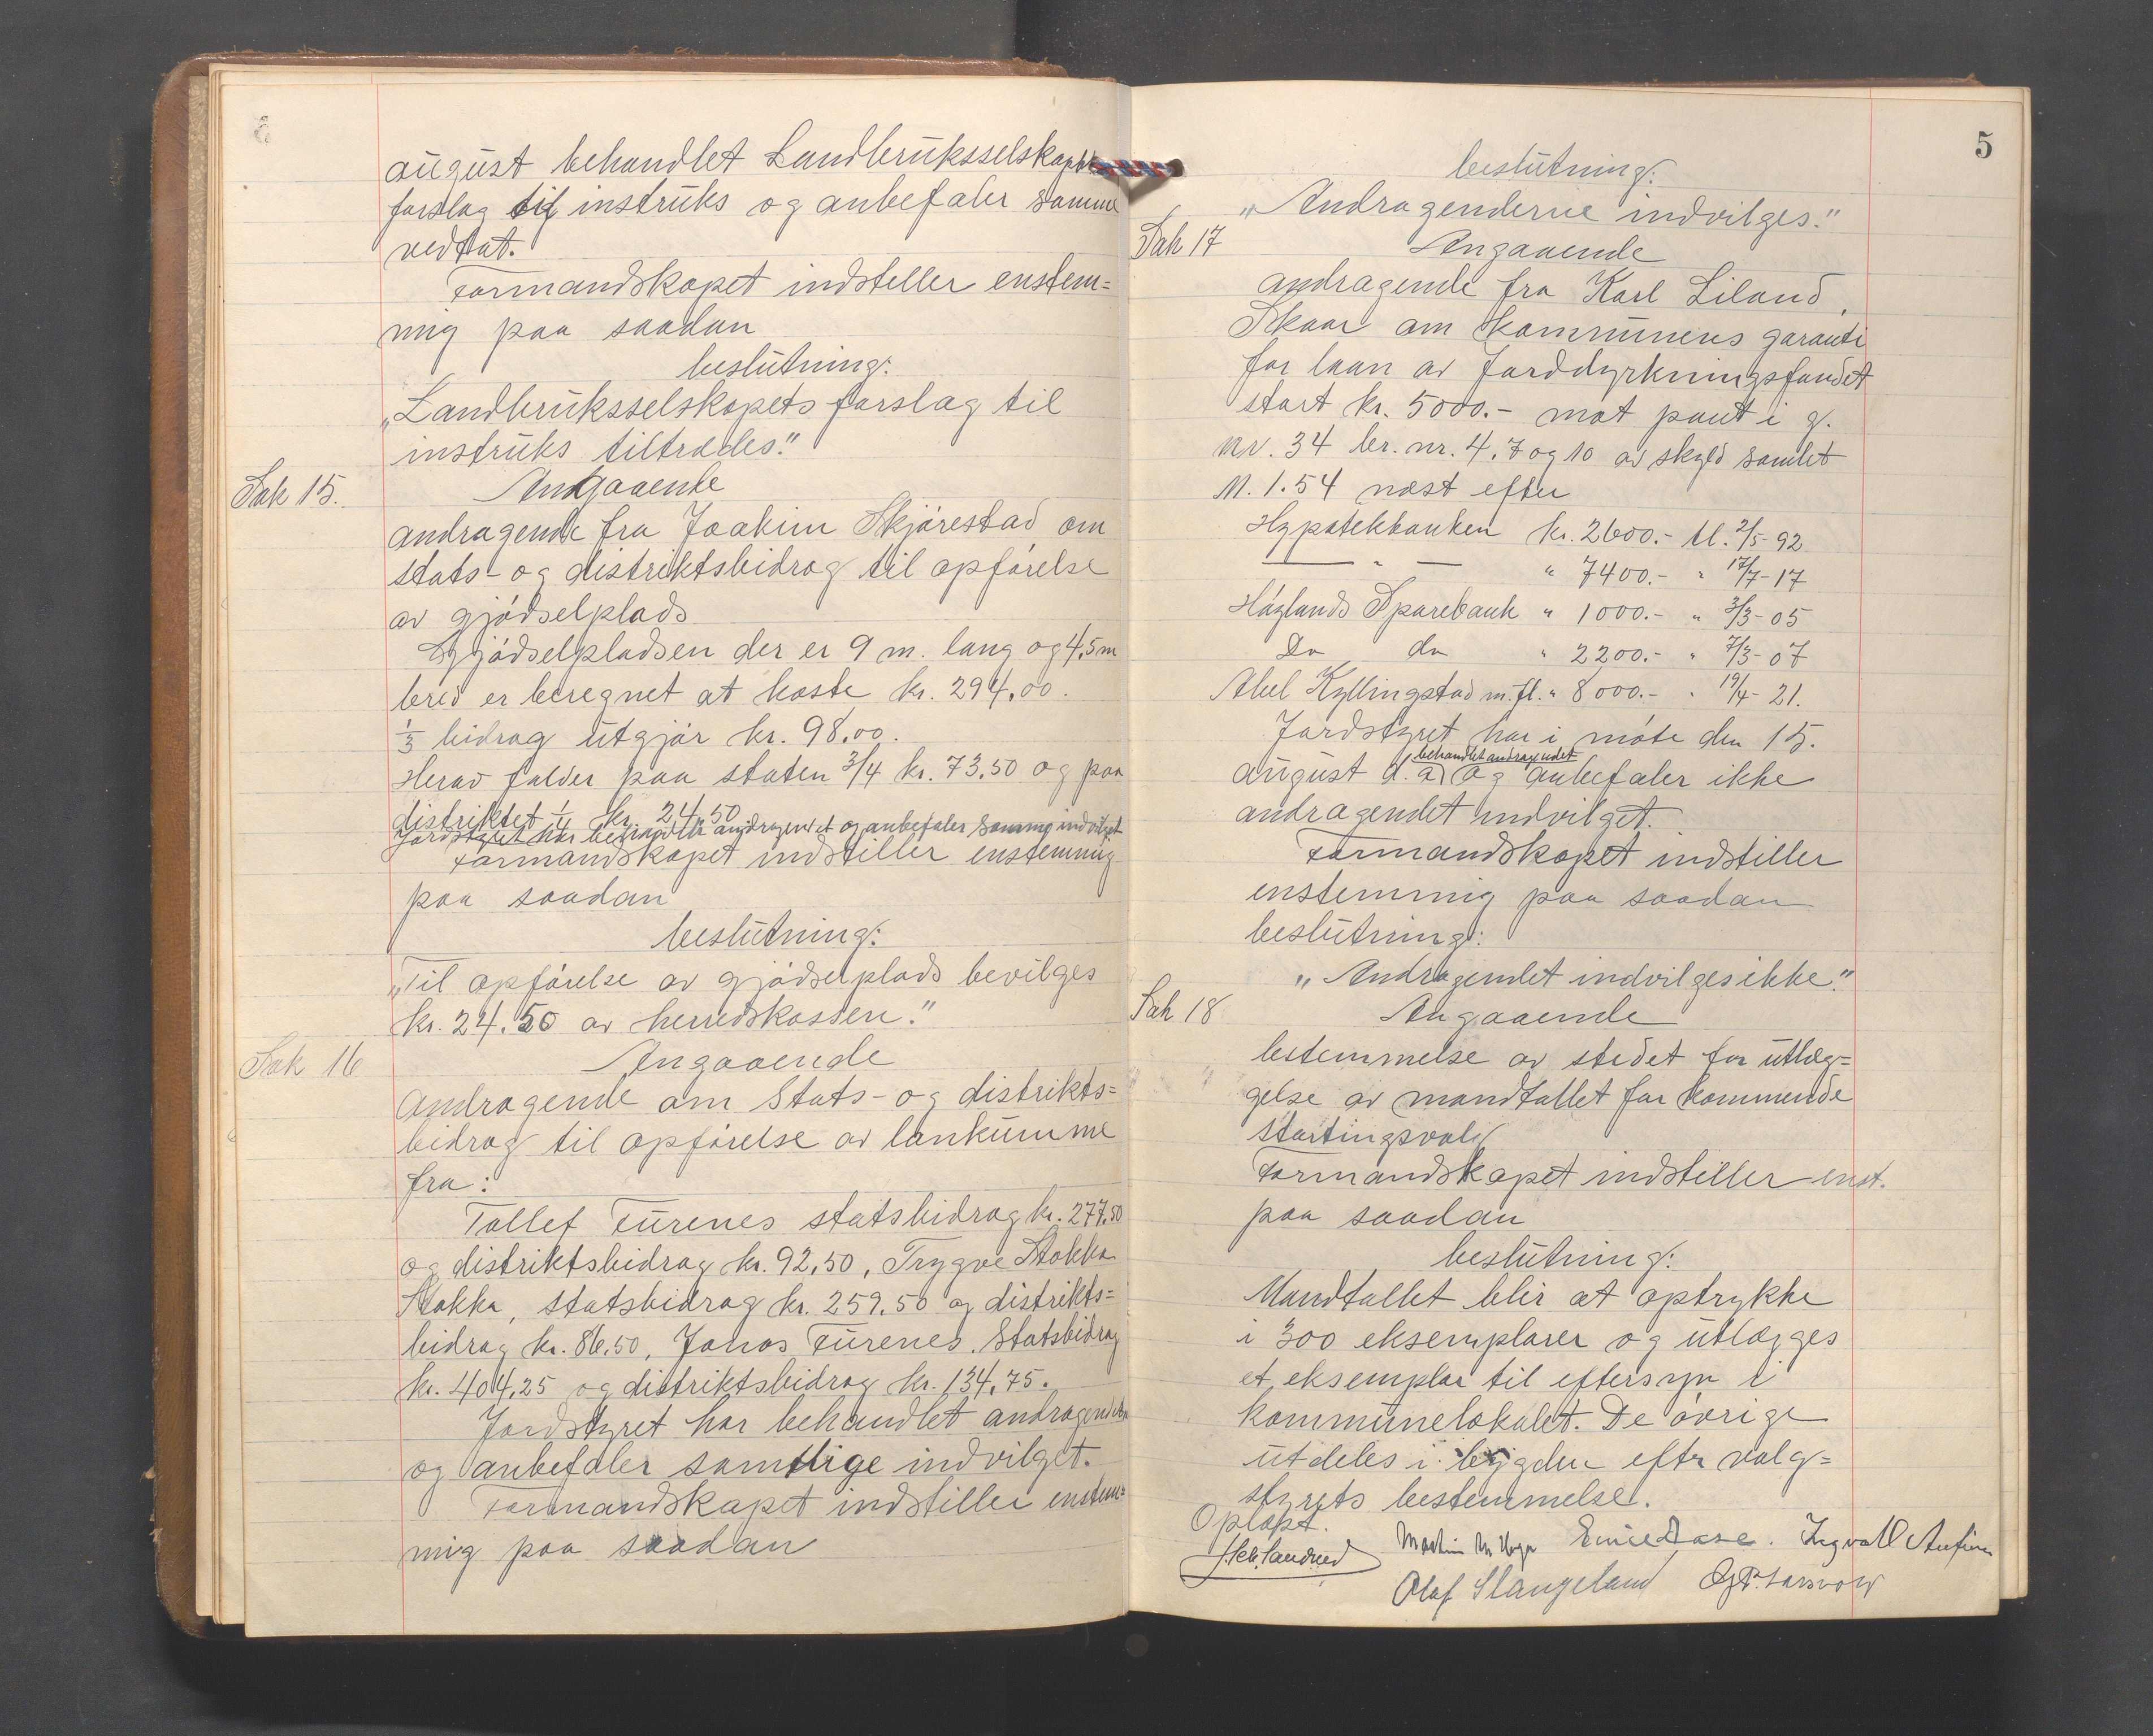 august behandlet Landbruksselskapets
forslag til instruks og anbefaler samme
vedtat.
Formandskapet indsteller enstem=
mig paa saadan
beslutning:
"Landbruksselskapets forslag til
instruks tiltrædes."
Sak 15.
Angaaende
andragende fra Joakim Skjørestad om
stats- og distriktsbidrag til opførelse
av gjødselplads
Gjødselpladsen der er 9 m. lang og 4,5 m
bred er beregnet at koste kr. 294,00.
1/3 bidrag utgjør kr. 98,00.
Herav falder paa staten 3/4 kr. 73.50 og paa
distriktet 1/4 kr. 24.50
Jordstyret har behandlet andragendet og anbefaler samme indvilget
Formandskapet indstiller enstemmig
paa saadan
beslutning:
"Til opførelse av gjødselplads bevilges
kr. 24.50 av herredskassen."
Sak 16
Angaaende
andragende om Stats- og distrikts=
bidrag til opførelse av lankumme
fra:
Tollef Furenes statsbidrag kr. 277.50
og distriktsbidrag kr. 92,50, Trygve Stokka
Stokka, statsbidrag kr. 259.50 og distrikts=
bidrag kr. 86.50, Jonas Furenes. Statsbidrag
kr. 404.25 og distriktsbidrag kr. 134,75.
Jordstyret har behandlet andragenderne
og anbefaler samtlige indvilget.
Formandskapet indstiller enstem=
mig paa saadan
5
beslutning:
"Andragenderne indvilges."
Sak 17
Angaaende
andragende fra Karl Liland,
Skaar om kommunens garanti
for laan av Jorddyrkningsfondet
stort kr. 5000.- mot pant i g.
nr. 34 br. nr. 4, 7 og 10 av skyld samlet
M. 1.54 næst efter
Hypotekbanken kr. 2600.- tl. 2/5-92
— " — " 7400.- " 17/7-17
Høylands Sparebank " 1000.- " 3/3-05
Do do " 2200.- " 7/3-07
Abel Kyllingstad m.fl. " 8000.- " 19/4-21.
Jordstyret har i møte den 15.
behandlet andragendet
august d. a. og anbefaler ikke
andragendet indvilget.
Formandskapet indstiller
enstemmig paa saadan
beslutning:
"Andragendet indvilges ikke."
Sak 18
Angaaende
bestemmelse av stedet for utlæg=
gelse av mandtallet for kommende
stortingsvalg
Formandskapet indstiller enst.
paa saadan
beslutning:
Mandtallet blir at optrykke
i 300 eksemplarer og utlægges
et eksemplar til eftersyn i
kommunelokalet. De øvrige
utdeles i bygden eftr valg=
styrets bestemmelse.
Oplæst.
Martin M. Emil Aase. Ingvald
Olaf Slangeland